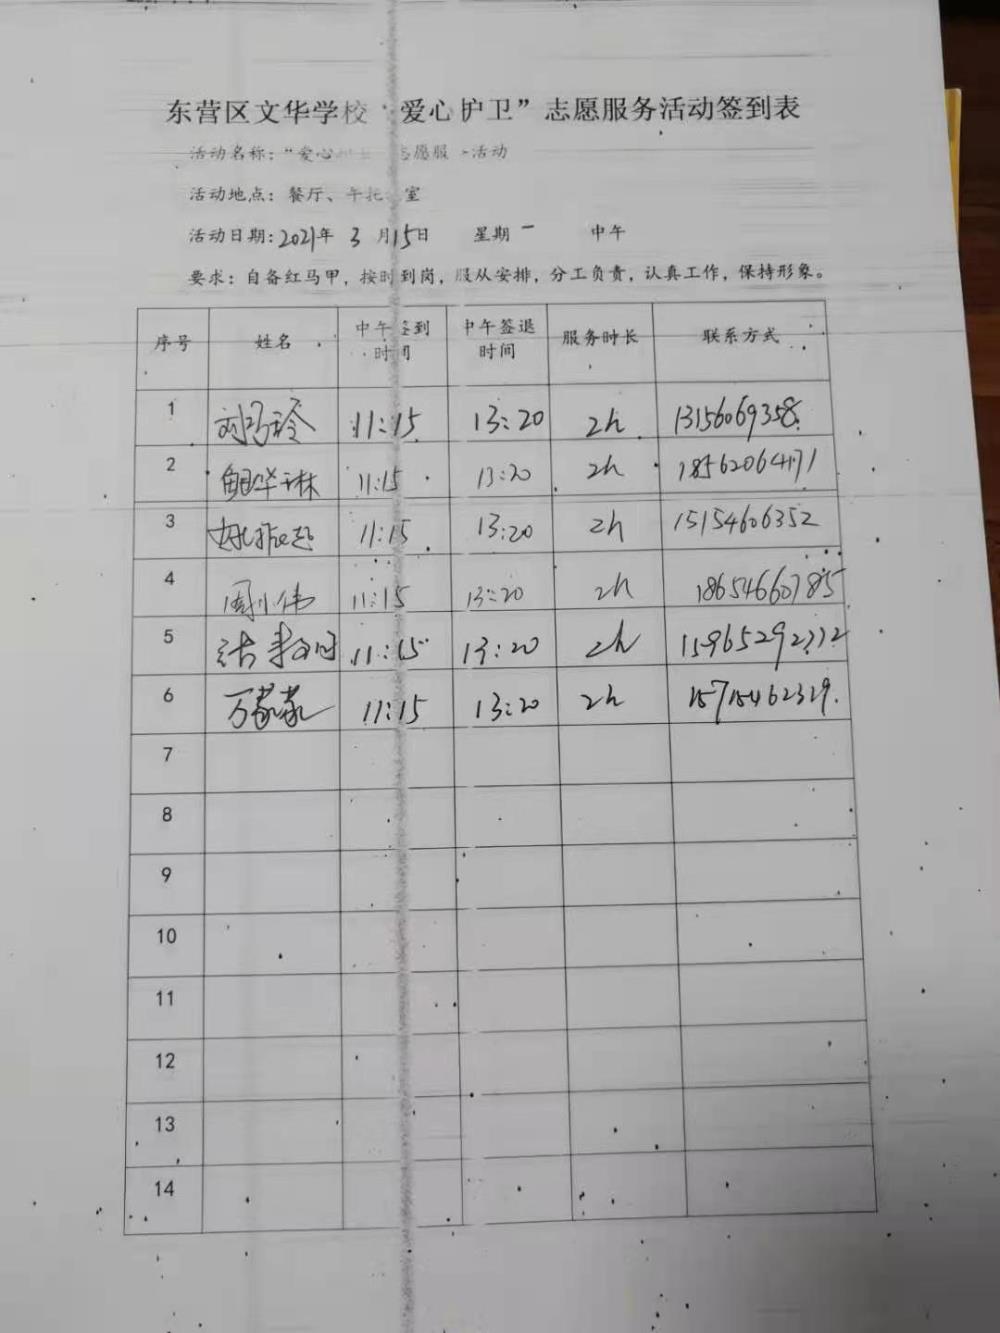 东营区文华学校“爱心护卫”志愿服务活动签到表
活动名称：“爱心 志愿服 活动
活动地点：餐厅、午托 室
活动日期：2021年 3 月15日 星期一 中午
要求：自备红马甲，按时到岗，服从安排，分工负责，认真工作，保持形象。
序号 姓名 中午签到时间 中午签退时间 服务时长 联系方式
1 11:15 13:20 2h 13156069358
2 11:15 13:20 2h
3 11:15 13:20 2h 15154606352
4 周小伟 11:15 13:20 2h 18654660785
5 11:15 13:20 2h
6 万家家 11:15 13:20 2h 15715462329
7
8
9
10
11
12
13
14